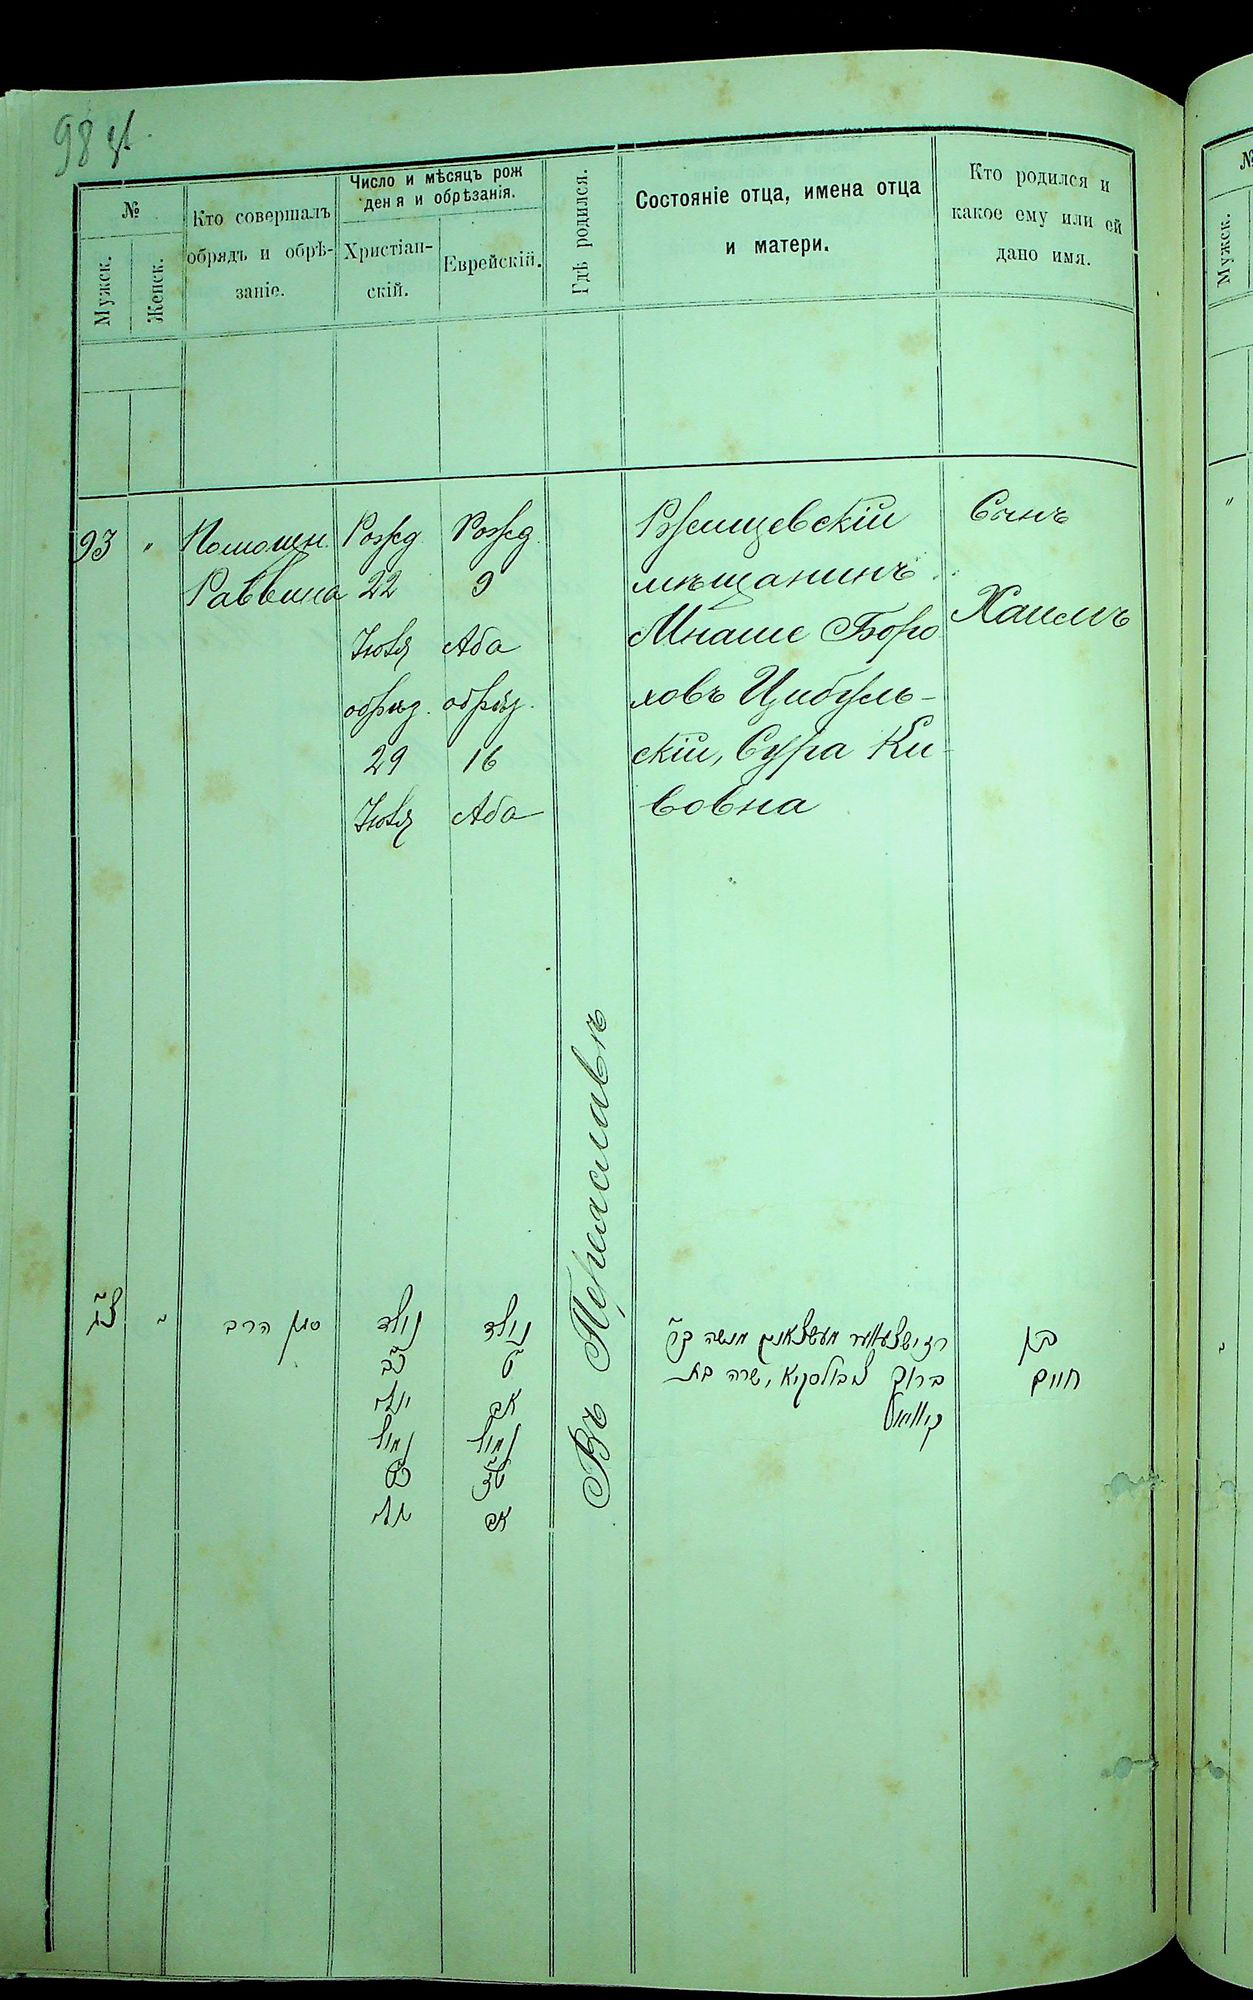 98
№
Мужск.
Женск.
Кто совершалъ
обрядъ и обрѣ-
заніе.
Число и мѣсяцъ рож
ден я и обрѣзанія.
Христіан-
скій.
Еврейскій.
Гдѣ родился.
Состояніе отца, имена отца
и матери.
Кто родился и
какое ему или ей
дано имя.
93 "
Помощн.
Раввина
Рожд.
22
Іюля
обрѣз.
29
Іюля
Рожд.
9
Аба
обрѣз.
16
Аба
Въ Переяславѣ
Ржищевскій
мѣщанинъ
Мнаше Боро
ховъ Цибуль-
скій, Сура Ки-
вовна
Сынъ
Хаимъ
צ״ג
סגן הרב
נולד
כ״ב
יולי
נמול
כ״ט
יולי
נולד
ט׳
אב
נמול
ט״ז
אב
מנשה ב״ר
ברוך ציבולסקיא, שרה בת
בן
חיים
№
Мужск.
"